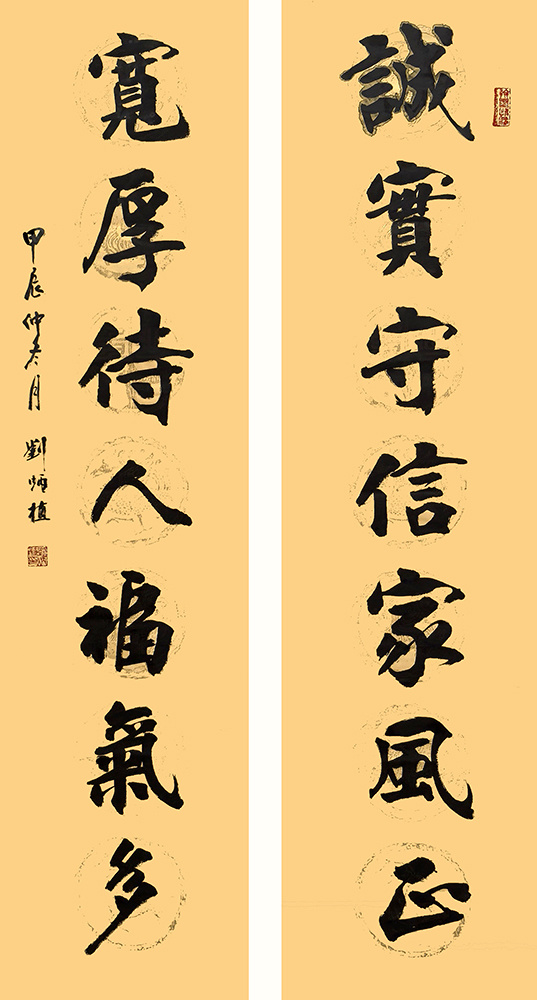 誠實守信家風正
寬厚待人福氣多
甲辰仲冬月 劉炳植